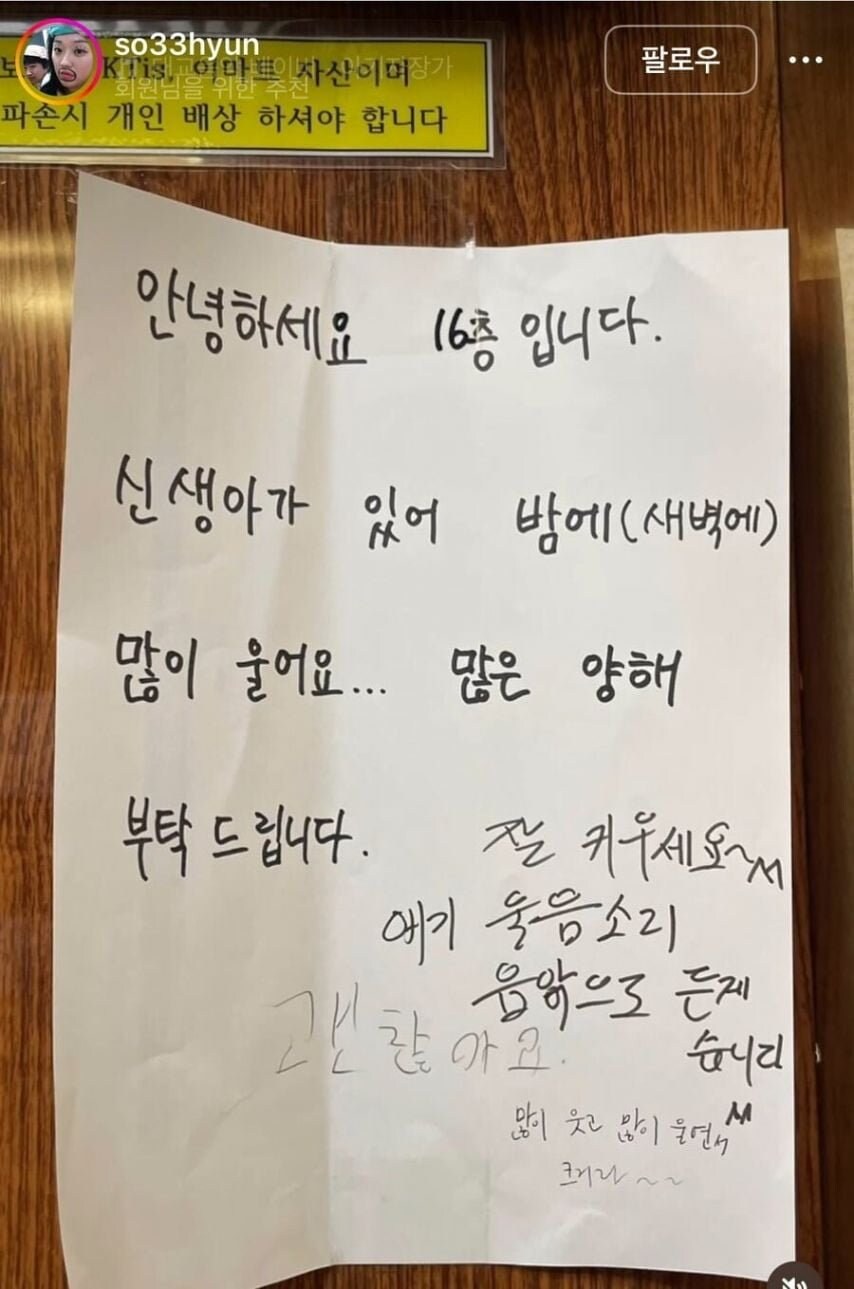 so33hyun
팔로우
회원님을 위한 추천
KTis, 이마트 자산이며
파손시 개인 배상 하셔야 합니다
안녕하세요 16층 입니다.
신생아가 있어 밤에(새벽에)
많이 울어요... 많은 양해
부탁 드립니다.
잘 키우세요~^^
애기 울음소리
음악으로 듣제
습니다
갠찮아요.
많이 웃고 많이 울면서^^
크거라~~